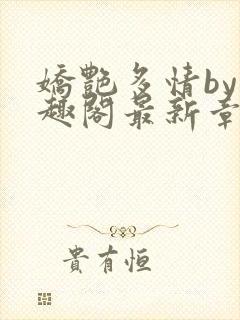 嬌艷多情by
趣閣最新章
貴有恒